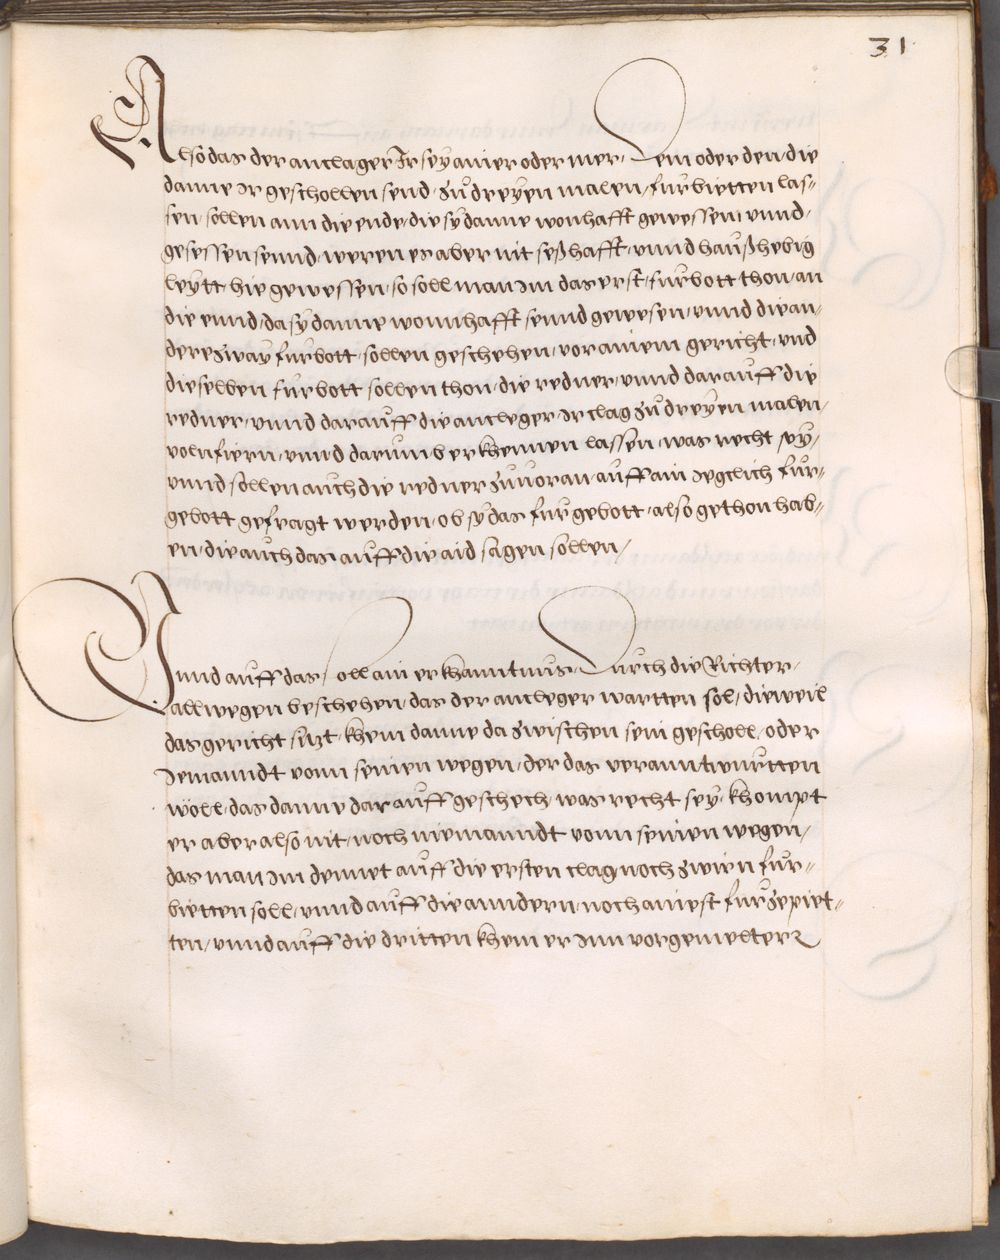 31
Also das der anclager Ir sey ainer oder mer, Dem oder den, die
danne Ir geschollen send, zu dreyen malen, fürbietten las=
sen, sollen ann die ende, die sy danne wonhafft gewessen, vnnd,
gesessen sennd, weren es aber nit seßhafft, vnnd haußhebig
leytt, hie gewessen, so soll man Im das erst, fürbott thon, an
die ennd, da sy danne wonnhafft sennd gewesen, vnnd die an=
dere zway fürbott, sollen geschehen, vor ainem gericht, vnd
dieselben fürbott sollen thon, die redner, vnnd darauff die
redner, vnnd darauff die ancleger Ir clag zu dreyen malen,
volnfiern, vnnd darumb erkhennen lassen, was recht sey,
vnnd sollen auch die redner zuuoran, auff ain yegclich für=
gebott gefragt werden, ob sy das fürgebott, also gethon hab=
en, die auch das auff die aid sagen sollen,
Vnnd auff das, soll ain erkhanntnus, Durch die Richter,
allwegen beschehen, das der ancleger wartten sol, dieweil
das gericht sizt, khem danne dazwischen sein gescholl, oder
Iemanndt vonn seinen wegen, der das veranntwurtten
wöll, das danne darauff geschech, was recht sey, khompt
er aber also nit, noch niemanndt vonn seinen wegen,
das man Im dennet auff die ersten clag noch zwien für=
bietten soll, vnnd auff die anndern, noch ainest fürzepiet=
ten, vnnd auff die dritten khem er Inn vorgemelter